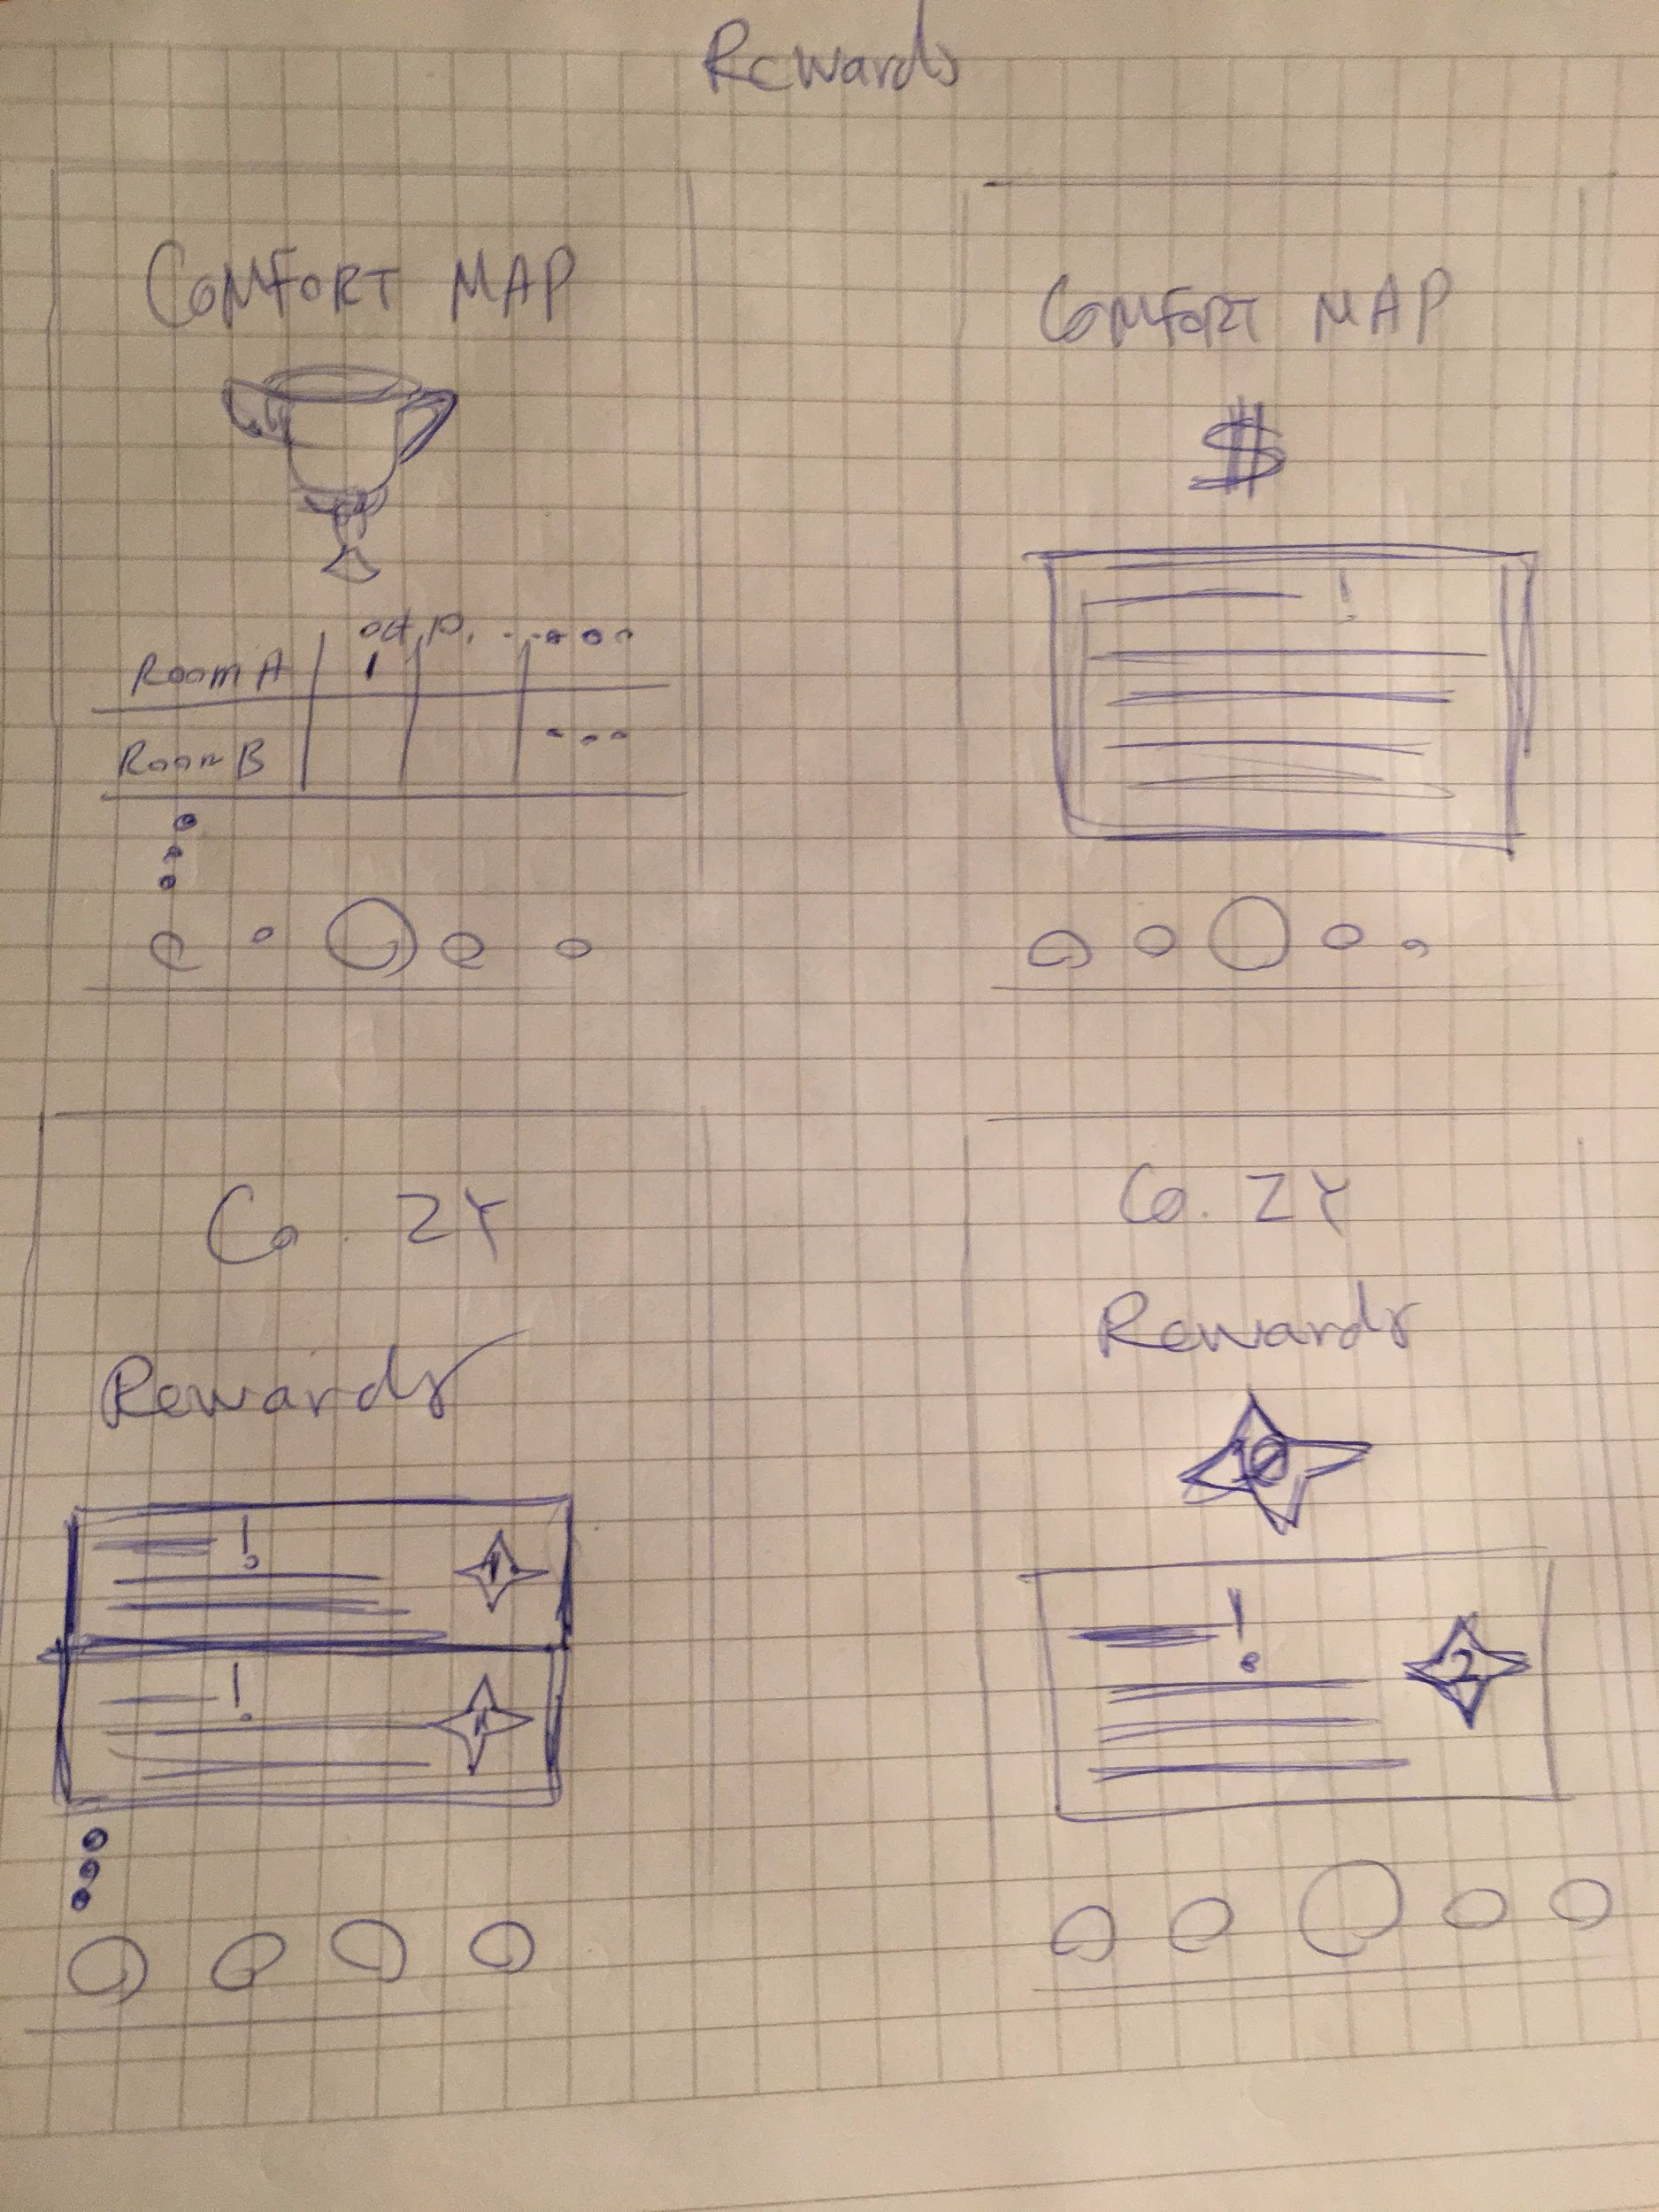 Rewards
COMFORT MAP
Room A
1
Room B
COMFORT MAP
$
!
Co.ZY
Rewards
!
!
Co.ZY
Rewards
10
!
2